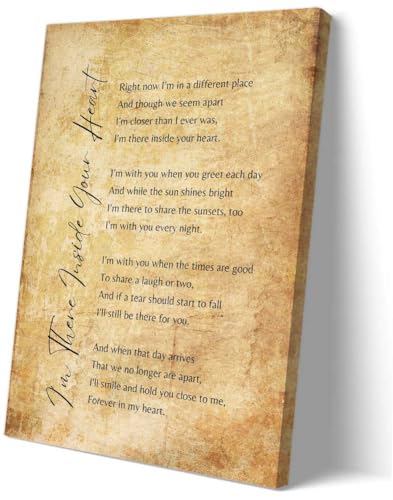 I'm There Inside Your Heart
Right now I'm in a different place
And though we seem apart
I'm closer than I ever was,
I'm there inside your heart.
I'm with you when you greet each day
And while the sun shines bright
I'm there to share the sunsets, too
I'm with you every night.
I'm with you when the times are good
To share a laugh or two,
And if a tear should start to fall
I'll still be there for you.
And when that day arrives
That we no longer are apart,
I'll smile and hold you close to me,
Forever in my heart.